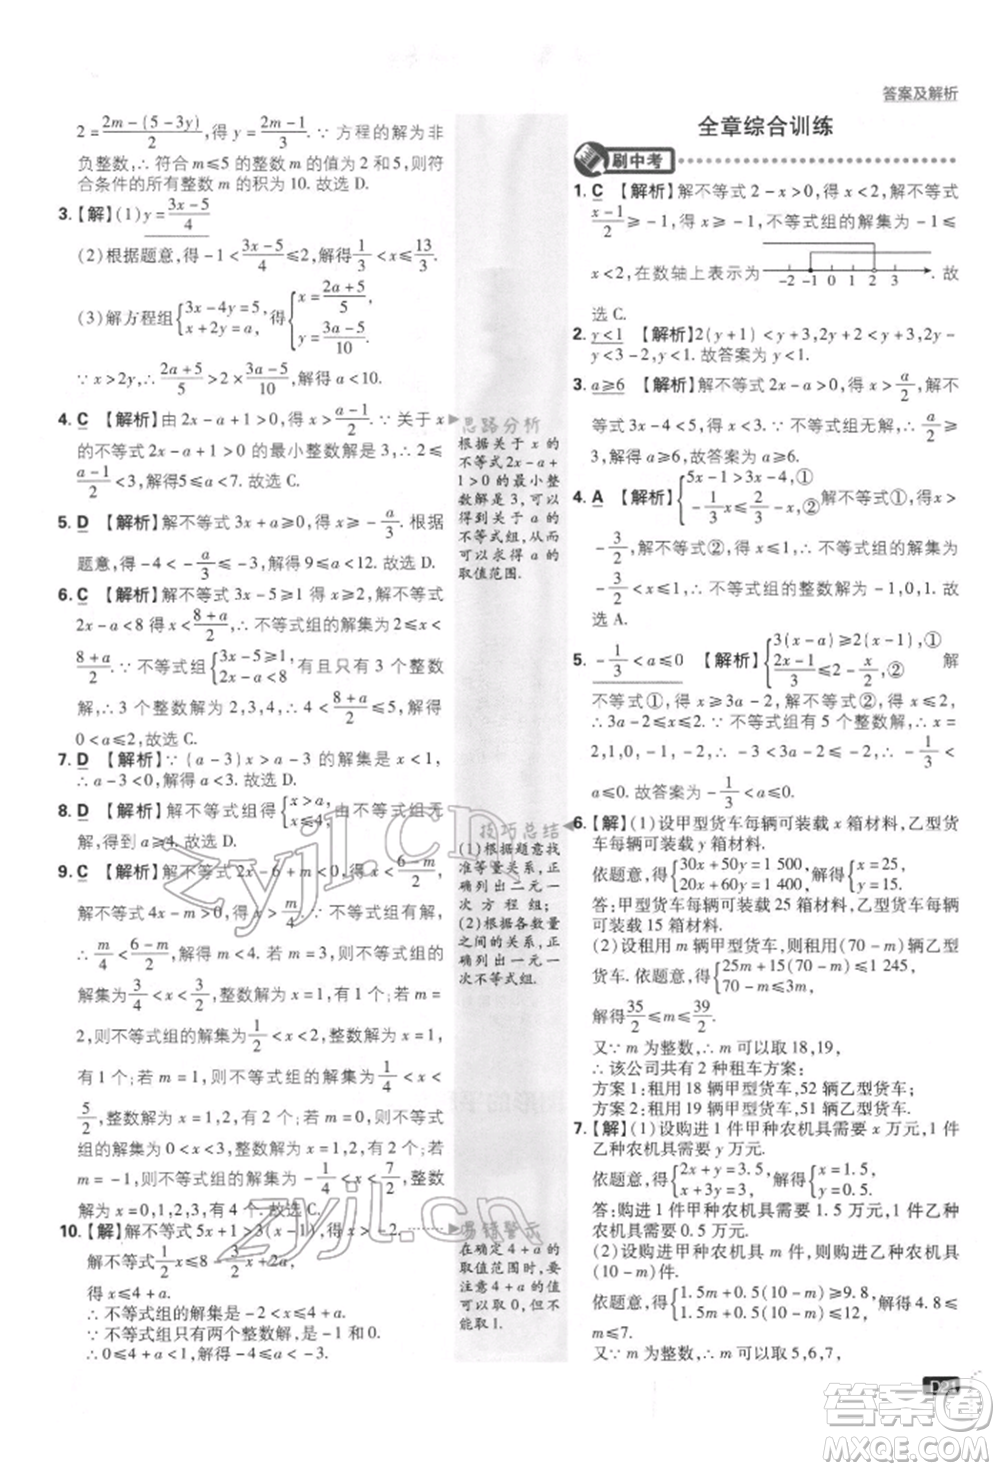 答案及解析
2=\frac{2m-(5-3y)}{2},得 y=\frac{2m-1}{3}. ∵ 方程的解为非
负整数,∴ 符合 m≤5 的整数 m 的积为 10. 故选 D.
3.【解】(1)y=\frac{3x-5}{4}
(2)根据题意,得 -1<\frac{3x-5}{4}≤2,解得\frac{1}{3}<x≤\frac{13}{3}.
(3)解方程组{3x-4y=5, x+2y=a, 得{x=\frac{2a+5}{5}, y=\frac{3a-5}{10}.
∵ x>2y,∴ \frac{2a+5}{5}>2×\frac{3a-5}{10},解得 a<10.
4. C 【解析】由 2x-a+1>0,得 x>\frac{a-1}{2}. ∵ 关于 x
的不等式 2x-a+1>0 的最小整数解为 3,∴ 2≤
\frac{a-1}{2}<3,解得5≤a<7. 故选 C.
5. D 【解析】解不等式 3x+a≥0,得 x≥-\frac{a}{3}. 根据
题意,得 -4<-\frac{a}{3}≤-3,解得 9≤a<12,故选 D.
6. C 【解析】解不等式 3x-5≥1,得 x≥2,解不等式
2x-a<8 得 x<\frac{8+a}{2},∴ 不等式组的解集为 2≤x<
\frac{8+a}{2}. ∵ 不等式组{3x-5≥1, 2x-a<8 有且只有 3 个整数
解,∴ 3 个整数解为 2,3,4,∴ 4<\frac{8+a}{2}≤5,解得
0<a≤2,故选 C.
7. D 【解析】∵ (a-3)x>a-3 的解集是 x<1,
∴ a-3<0,解得 a<3. 故选 D.
8. D 【解析】解不等式组得{x>a, x<-4. 由不等式组无
解,得到 a≥-4. 故选 D.
9. C 【解析】解不等式 2x-6+m<0,得 x<\frac{6-m}{2},
解不等式 4x-m>0,得 x>\frac{m}{4}. ∵ 不等式组有解,
∴ \frac{m}{4}<\frac{6-m}{2},解得 m<4. 若 m=3,则不等式组的
解集为\frac{3}{4}<x<\frac{3}{2},整数解有 x=1,有 1 个;若 m=
2,则不等式组的解集为\frac{1}{2}<x<2,整数解有 x=1,
有 1 个;若 m=1,则不等式组的解集为\frac{1}{4}<x<
\frac{5}{2},整数解有 x=1,2,有 2 个;若 m=0,则不等式
组的解集为 0<x<3,整数解有 x=1,2,有 2 个;若
m=-1,则不等式组的解集为-\frac{1}{4}<x<\frac{7}{2},整数
解有 x=0,1,2,3,有 4 个,故选 C.
10.【解】解不等式 5x+1>3(x-1),得 x>-2.
解不等式\frac{1}{2}x≤8-\frac{3}{2}x+2a,
得 x≤4+a.
∴ 不等式组的解集是 -2<x≤4+a.
∵ 不等式组只有两个整数解,
∴ 0≤4+a<1,解得 -4≤a<-3.
思路分析
根据关于 x 的
不等式2x-a+
1>0 的最小整
数解是3,可以
得到关于 a 的
不等式组,从而
可以求得 a 的
取值范围.
技巧总结
(1)根据题意找
准等量关系,正
确列出二元一
次方程组.
(2)根据各数量
之间的关系,正
确列出一元一
次不等式组.
易错警示
在确定 4+a 的
取值范围时,要
注意 4+a 的值
可以取0,但不
能取1.
全章综合训练
刷中考
1. C 【解析】解不等式 2-x>0,得 x<2,解不等式
\frac{x-1}{2}≥-1,得 x≥-1,则不等式组的解集为 -1≤
x<2,在数轴上表示为 -2 -1 0 1 2 3 . 故
选 C.
2. y<1 【解析】2(y+1)<y+3,2y+2<y+3,2y-
y<-2+3,y<1.故答案为 y<1.
3. a≥6 【解析】解不等式 2x-a>0,得 x>\frac{a}{2},解不
等式 3x-4<5,得 x<3. ∵ 不等式组无解,∴ \frac{a}{2}≥
3,解得 a≥6. 故答案为 a≥6.
4. A 【解析】{5x-1>3x-4,① -\frac{1}{3}≤\frac{2}{3}-x,② 解不等式①,得 x>
-\frac{3}{2},解不等式②,得 x≤1,∴ 不等式组的解集为
-\frac{3}{2}<x≤1,∴ 不等式组的整数解为 -1,0,1. 故
选 A.
5. -\frac{1}{3}<a≤0 【解析】{3(x-a)≥2(x-a),① \frac{2x-1}{3}≤\frac{x}{2},② 解
不等式①,得 x≥3a-2a,解不等式②,得 x≤2,
∴ 3a-2≤x≤2. ∵ 不等式组有 5 个整数解,∴ x=
2,1,0,-1,-2,∴ -3<3a-2≤-2,∴ -\frac{1}{3}<
a≤0. 故答案为 -\frac{1}{3}<a≤0.
6.【解】(1)设甲型货车每辆可装载 x 箱材料,乙型货
车每辆可装载 y 箱材料,
依题意,得{30x+50y=1 500, 20x+60y=1 400, 解得{x=25, y=15.
答:甲型货车每辆可装载 25 箱材料,乙型货车每辆
可装载 15 箱材料.
(2)设租用 m 辆甲型货车,则租用(70-m)辆乙型
货车. 依题意,得{25m+15(70-m)≤1 245, 70-m≤3m,
解得\frac{35}{2}≤m≤\frac{39}{2}.
又∵ m 为整数,∴ m 可以取 18,19,
∴ 该公司共有 2 种租车方案:
方案 1:租用 18 辆甲型货车,52 辆乙型货车;
方案 2:租用 19 辆甲型货车,51 辆乙型货车.
7.【解】(1)设购进 1 件甲种农机具需 x 万元,1 件乙
种农机具需 y 万元.
依题意,得{2x+y=3.5, x+3y=3, 解得{x=1.5, y=0.5.
答:购进 1 件甲种农机具需 1.5 万元,1 件乙种
农机具需要 0.5 万元.
(2)设购进甲种农机具 m 件,则购进乙种农机具
(10-m)件.
依题意,得{1.5m+0.5(10-m)≥9.8, 1.5m+0.5(10-m)≤12, 解得 4.8≤
m≤7.
又∵ m 为整数,∴ m 可以取 5,6,7,
D21
zyjl.cn
zyjl.cn
答案圈
MXQE.COM